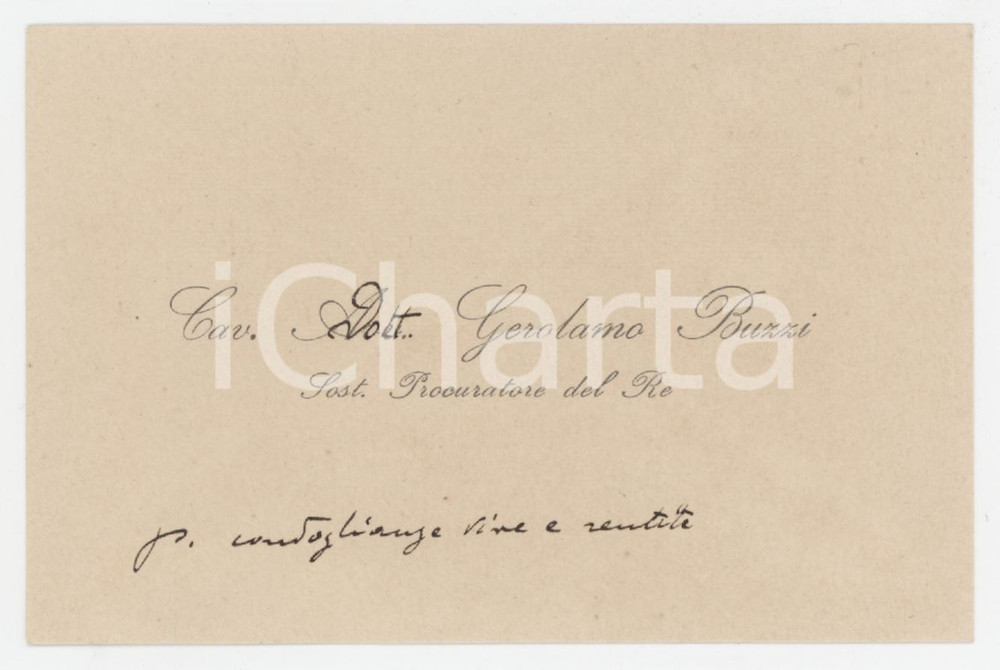 Cav. Dott. Gerolamo Buzzi
Sost. Procuratore del Re
p. condoglianze vive e sentite
iCharta